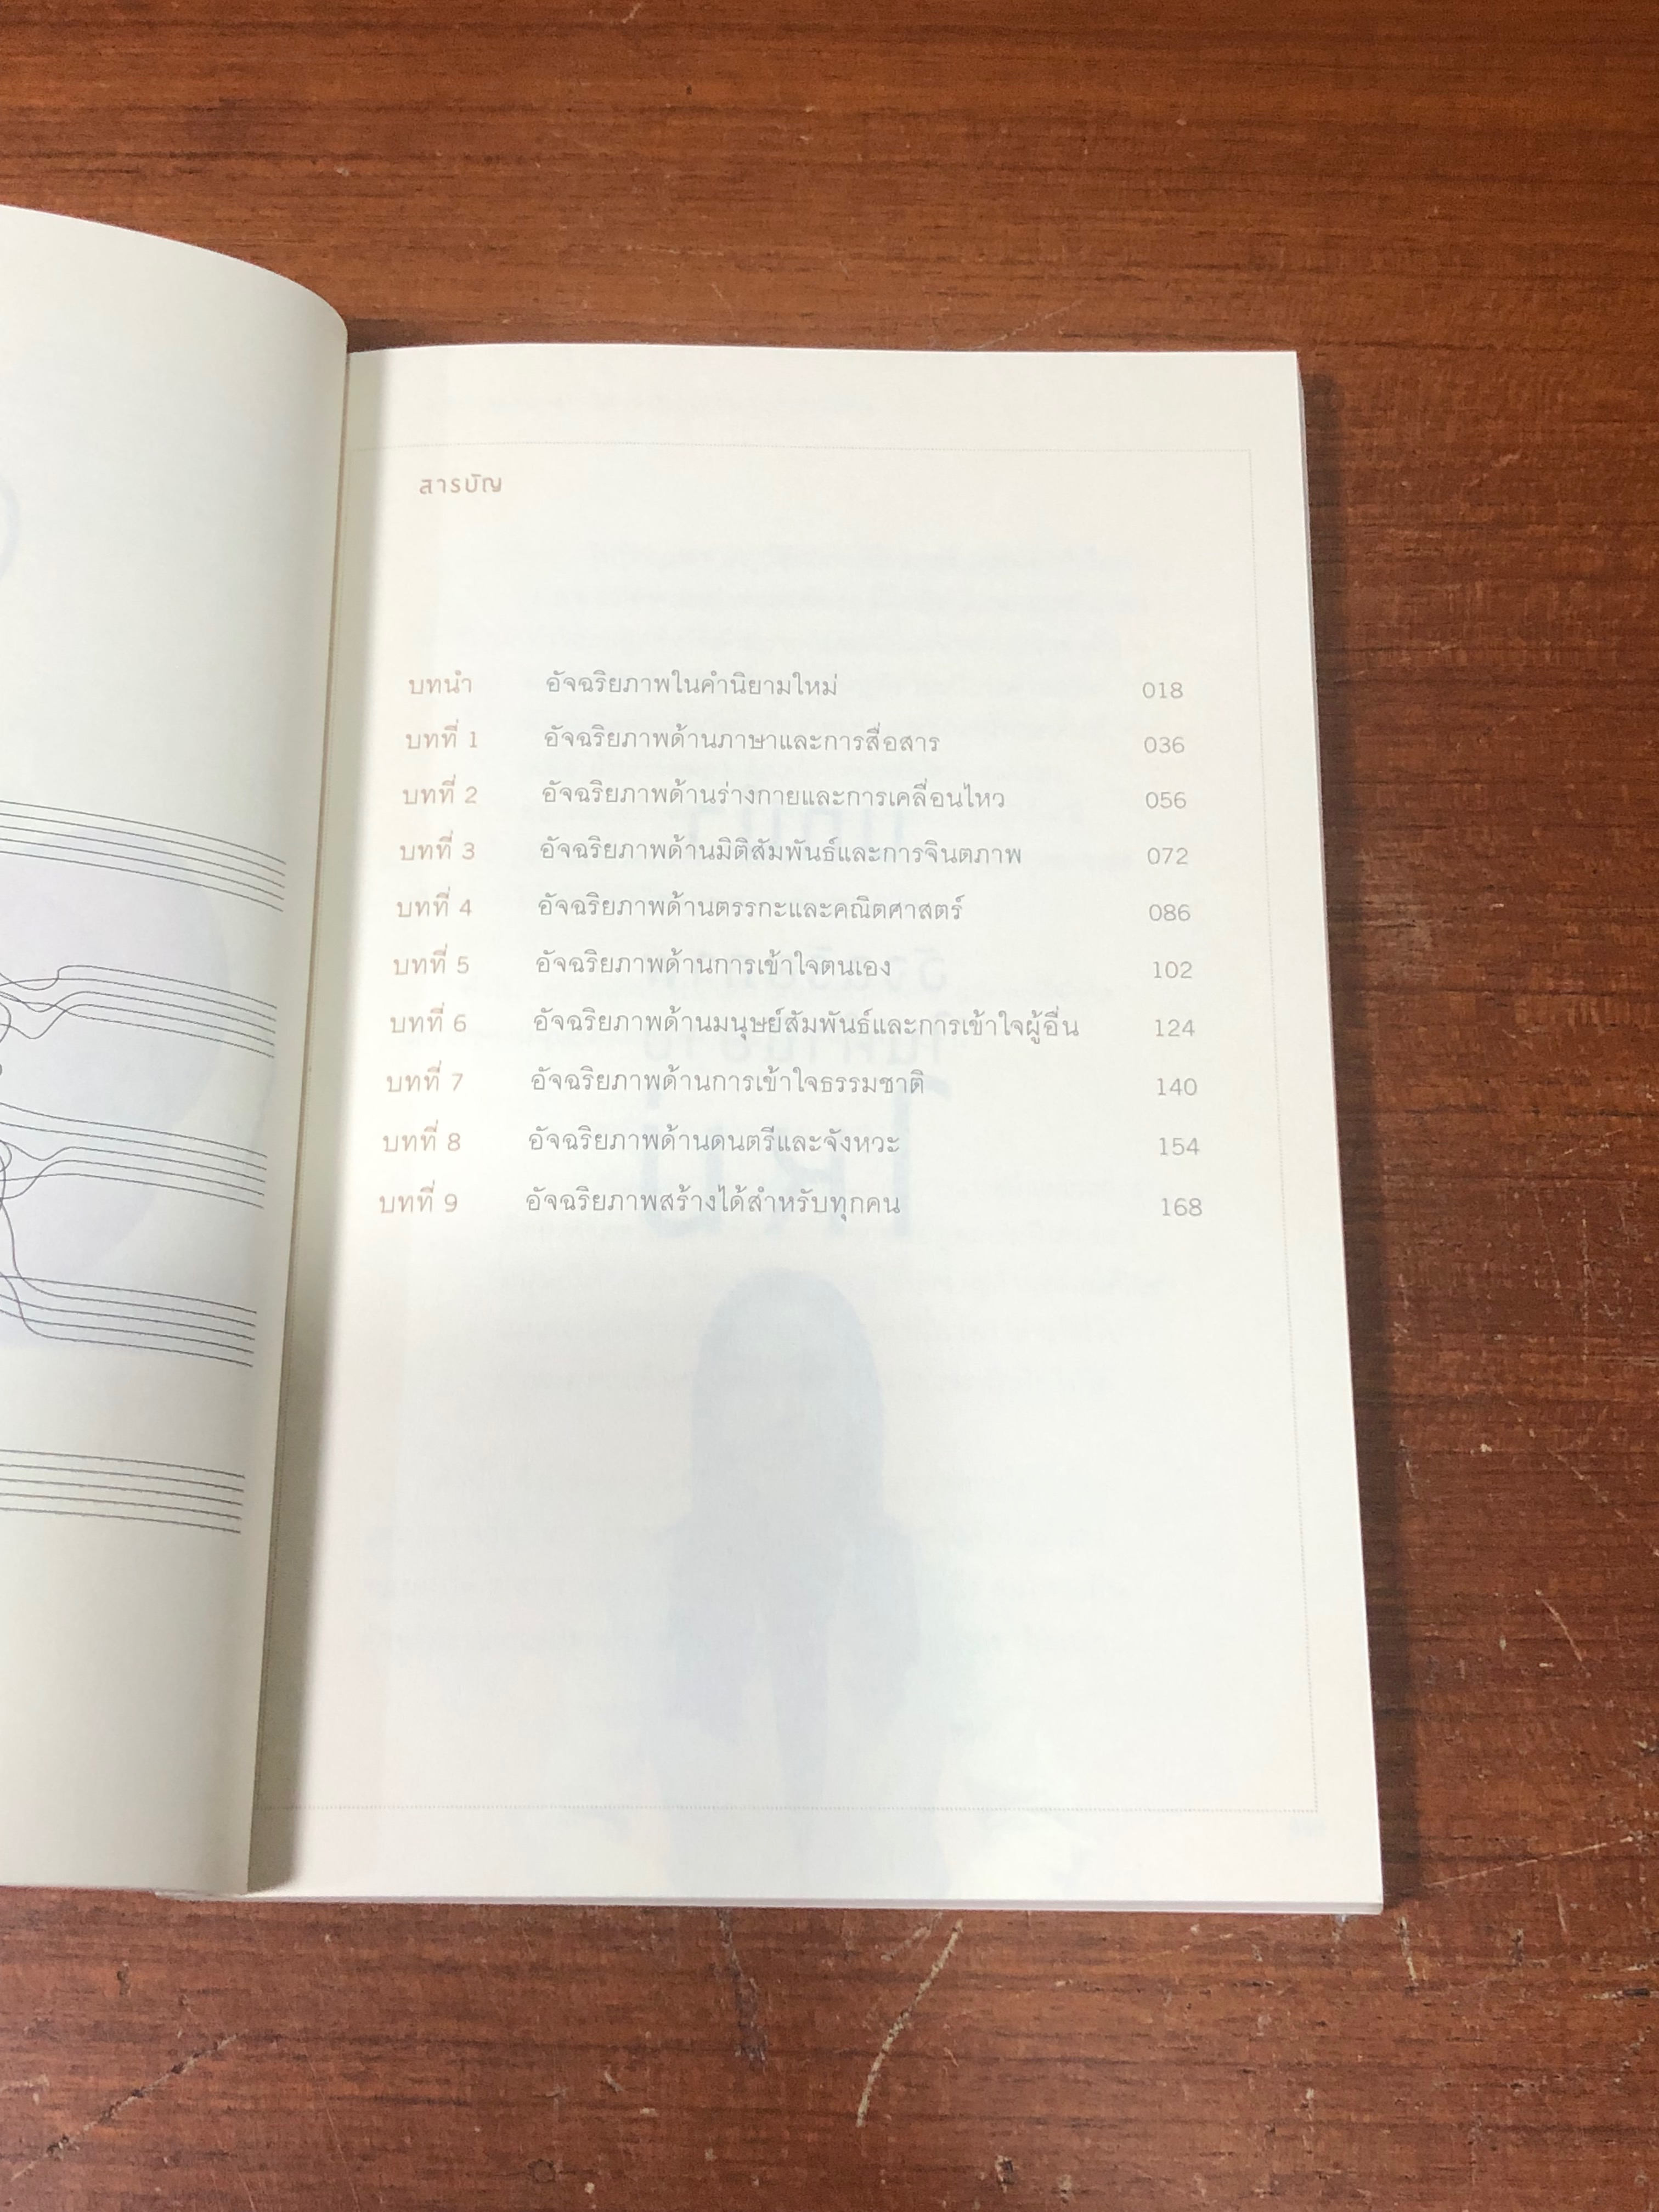 สารบัญ
บทนำ อัจฉริยภาพในคำนิยามใหม่ 018
บทที่ 1 อัจฉริยภาพด้านภาษาและการสื่อสาร 036
บทที่ 2 อัจฉริยภาพด้านร่างกายและการเคลื่อนไหว 056
บทที่ 3 อัจฉริยภาพด้านมิติสัมพันธ์และการจินตภาพ 072
บทที่ 4 อัจฉริยภาพด้านตรรกะและคณิตศาสตร์ 086
บทที่ 5 อัจฉริยภาพด้านการเข้าใจตนเอง 102
บทที่ 6 อัจฉริยภาพด้านมนุษย์สัมพันธ์และการเข้าใจผู้อื่น 124
บทที่ 7 อัจฉริยภาพด้านการเข้าใจธรรมชาติ 140
บทที่ 8 อัจฉริยภาพด้านดนตรีและจังหวะ 154
บทที่ 9 อัจฉริยภาพสร้างได้สำหรับทุกคน 168